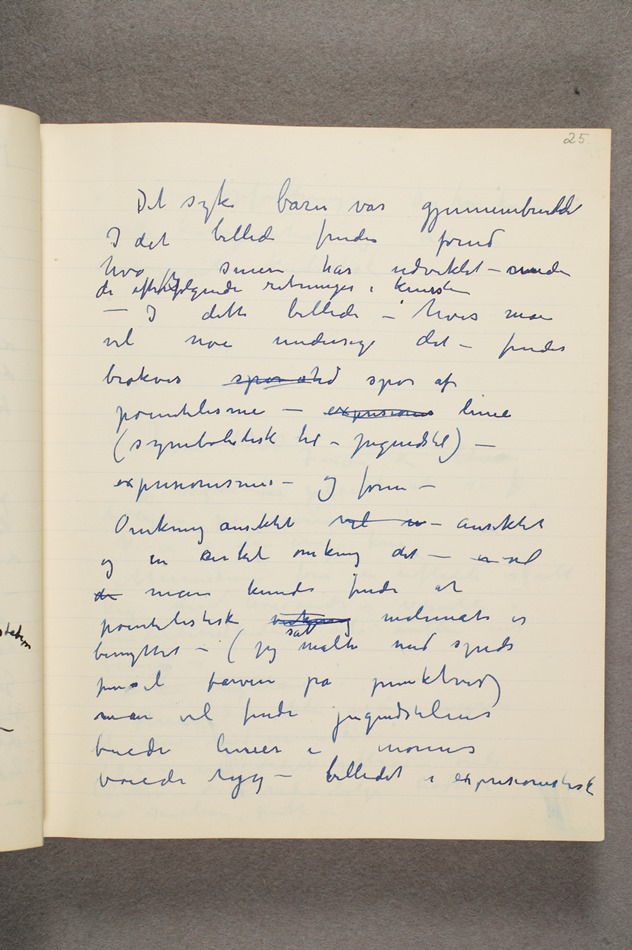 25
Det syke barn var gjennembrudd
I det billede findes forud
hva jeg senere har udviklet – under
de efterfølgende retninger i kunsten
– I dette billede – hvis man
vil nøie undersøge det – findes
spor af
pointilisme – expresions linie
(symbolistisk til – jugendstil) –
expresionisme – og form –
Omkring ansiktet – ansiktet
og en cirkel omkring det –
man kunde finde at
pointilistisk virkning er
benyttet – (jeg satte malte med spids
pensel farven på punktvis)
man vil finde jugendstilens
buede linier i morens
bøiede ryg – billedet i expresionistisk